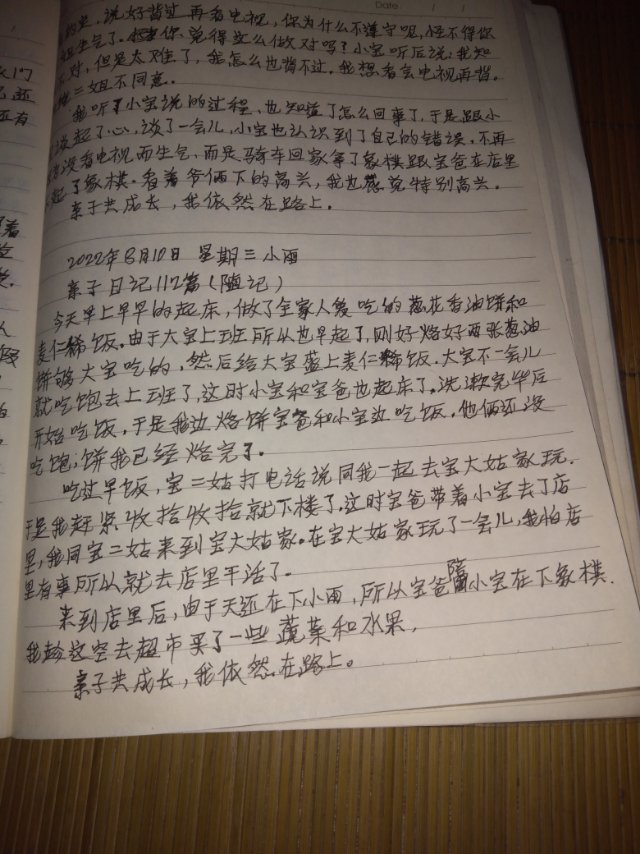 Date / /
的是,说好背过再看电视,你为什么不遵守呢,怪不得你
姐生气了。你觉得这么做对吗?小宝听后说:我知
不对,但是太难了,我怎么也背不过。我想看会电视再背。
二姐不同意。
我听了小宝说的过程,也知道了怎么回事了,于是跟小
谈起了心,谈了一会儿,小宝也认识到了自己的错误。不再
没看电视而生气,而是骑车回家拿了象棋跟宝爸在店里
起了象棋。看着爷俩下的高兴,我也感觉特别高兴。
亲子共成长,我依然在路上。
2022年8月10日 星期三 小雨
亲子日记112篇(随记)
今天早上早早的起床,做了全家人爱吃的葱花香油饼和
麦仁稀饭。由于大宝上班所以也早起了,刚好烙好两张葱油
饼够大宝吃的,然后给大宝盛上麦仁稀饭。大宝不一会儿
就吃饱去上班了,这时小宝和宝爸也起床了。洗漱完毕后
开始吃饭,于是我边烙饼宝爸和小宝边吃饭。他俩还没
吃饱,饼我已经烙完了。
吃过早饭,宝二姑打电话说同我一起去宝大姑家玩.
于是我赶紧收拾收拾就下楼了。这时宝爸带着小宝去了店
里,我同宝二姑来到宝大姑家。在宝大姑家玩了一会儿,我怕店
里有事所以就去店里干活了。
来到店里后,由于天还在下小雨,所以宝爸陪小宝在下象棋.
我趁这空去超市买了一些蔬菜和水果,
亲子共成长,我依然在路上。